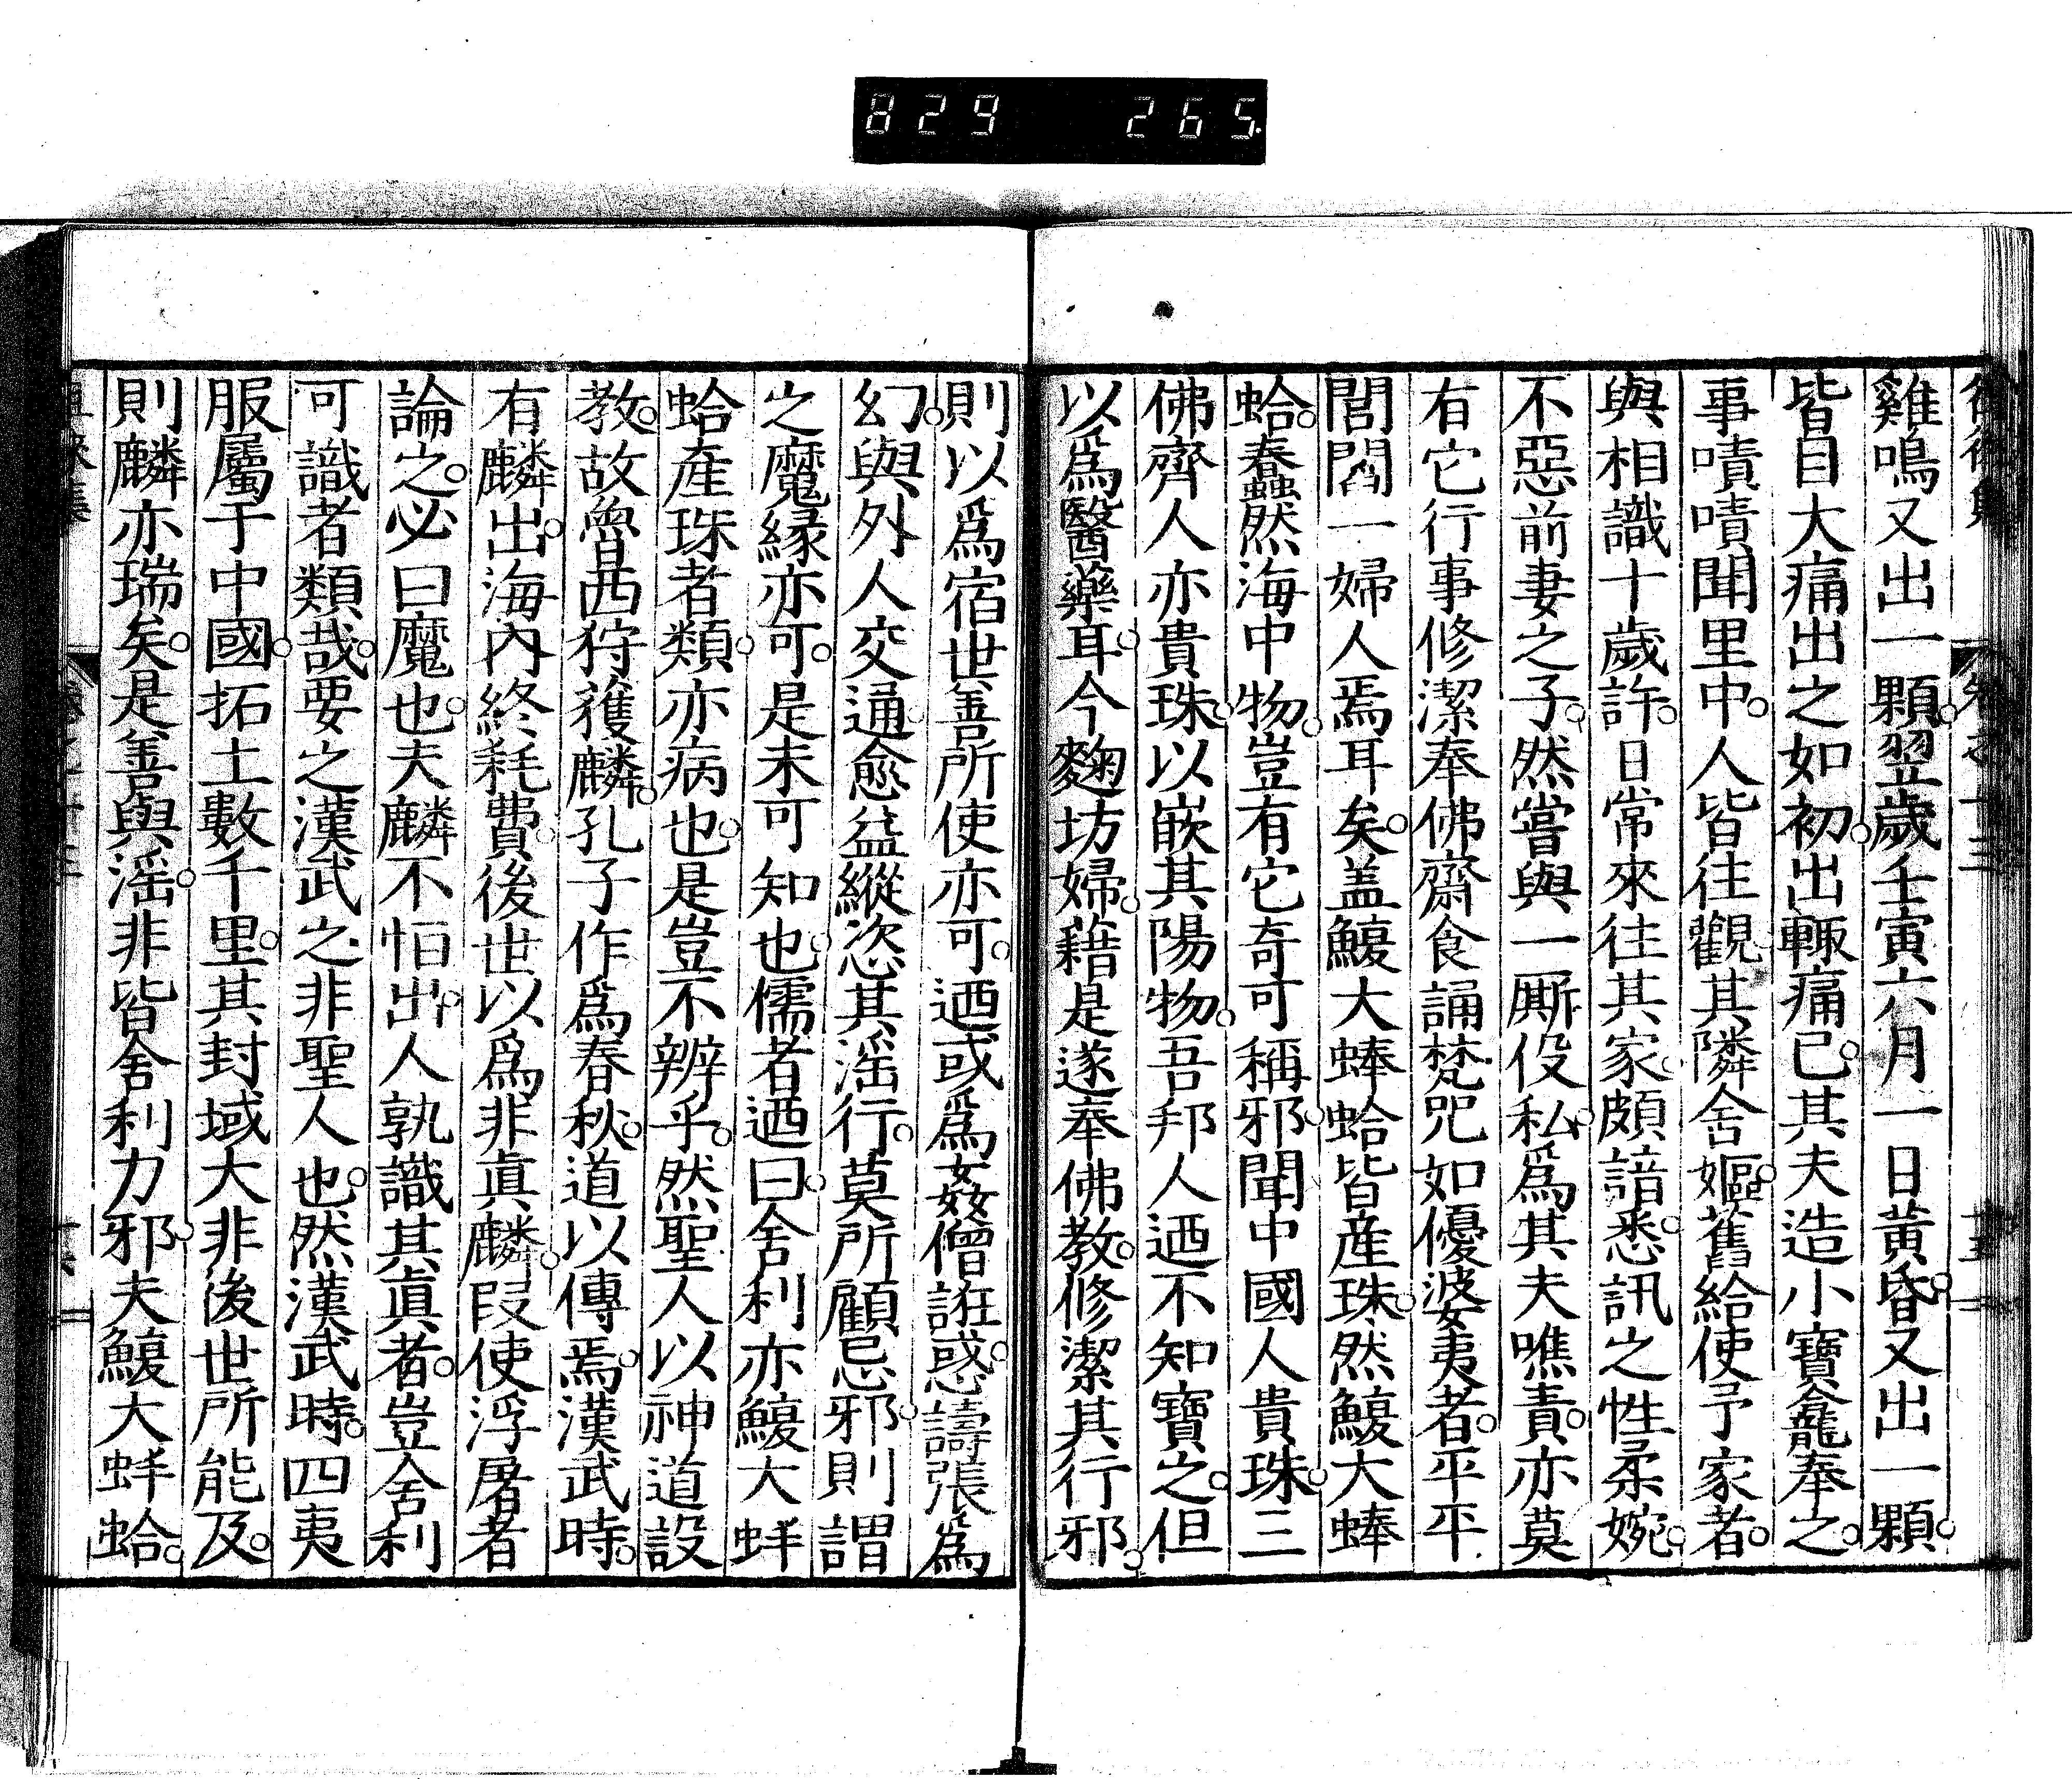 829 265
雞鳴又出一顆。翌歲壬寅六月一日黃昏。又出一顆。
皆目大痛出之如初。出輙痛已。其夫造小寶龕奉之。
事嘖嘖聞里中。人皆往觀其隣舍嫗。舊給使予家者。
與相識十歲許。日常來往其家。頗諳悉。訊之性柔婉。
不惡前妻之子。然嘗與一厮役私。爲其夫噍責。亦莫
有它行事修潔奉佛齋食誦梵咒如優婆夷者。平平
閭閻一婦人焉耳矣。盖鰒大蜯蛤皆産珠。然鰒大蜯
蛤。蠢然海中物。豈有它奇可稱邪。聞中國人貴珠。三
佛齊人亦貴珠。以嵌其陽物。吾邦人迺不知寶之。但
以爲醫藥耳。今麴坊婦。藉是遂奉佛教。修潔其行邪。
則以爲宿世善所使亦可。迺或爲姦僧誑惑。譸張爲
幻。與外人交通。愈益縱恣其淫行。莫所顧忌邪。則謂
之魔緣亦可。是未可知也。儒者迺曰。舍利亦鰒大蚌
蛤産珠者類。亦病也。是豈不辨乎。然聖人以神道設
教。故魯西狩獲麟。孔子作爲春秋。道以傳焉。漢武時。
有麟出。海內終耗費。後世以爲非眞麟。叚使浮屠者
論之。必曰魔也。夫麟不恒出。人孰識其眞者。豈舍利
可識者類哉。要之漢武之非聖人也。然漢武時。四夷
服屬于中國。拓土數千里。其封域大非後世所能及。
則麟亦瑞矣。是善與淫。非皆舍利力邪。夫鰒大蚌蛤。